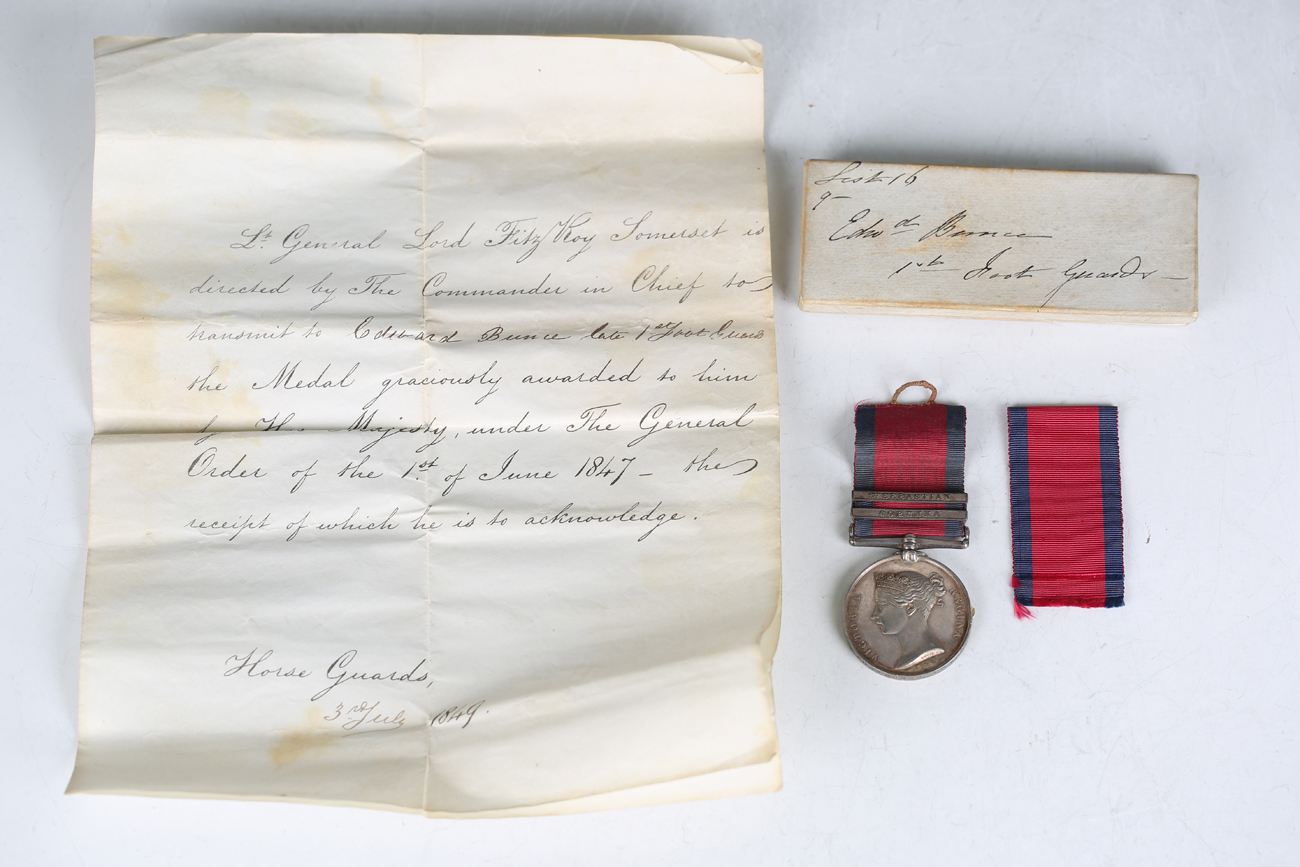 Lt. General Lord FitzRoy Somerset is
directed by The Commander in Chief to
transmit to Edward Bunce late 1st Foot Guards
the Medal graciously awarded to him
by Her Majesty, under The General
Order of the 1st. of June 1847 – the
receipt of which he is to acknowledge.
Horse Guards,
3rd July 1849.
List 16
9
Edwd Bunce
1st Foot Guards
ST SEBASTIAN
CORUNNA
VICTORIA REGINA